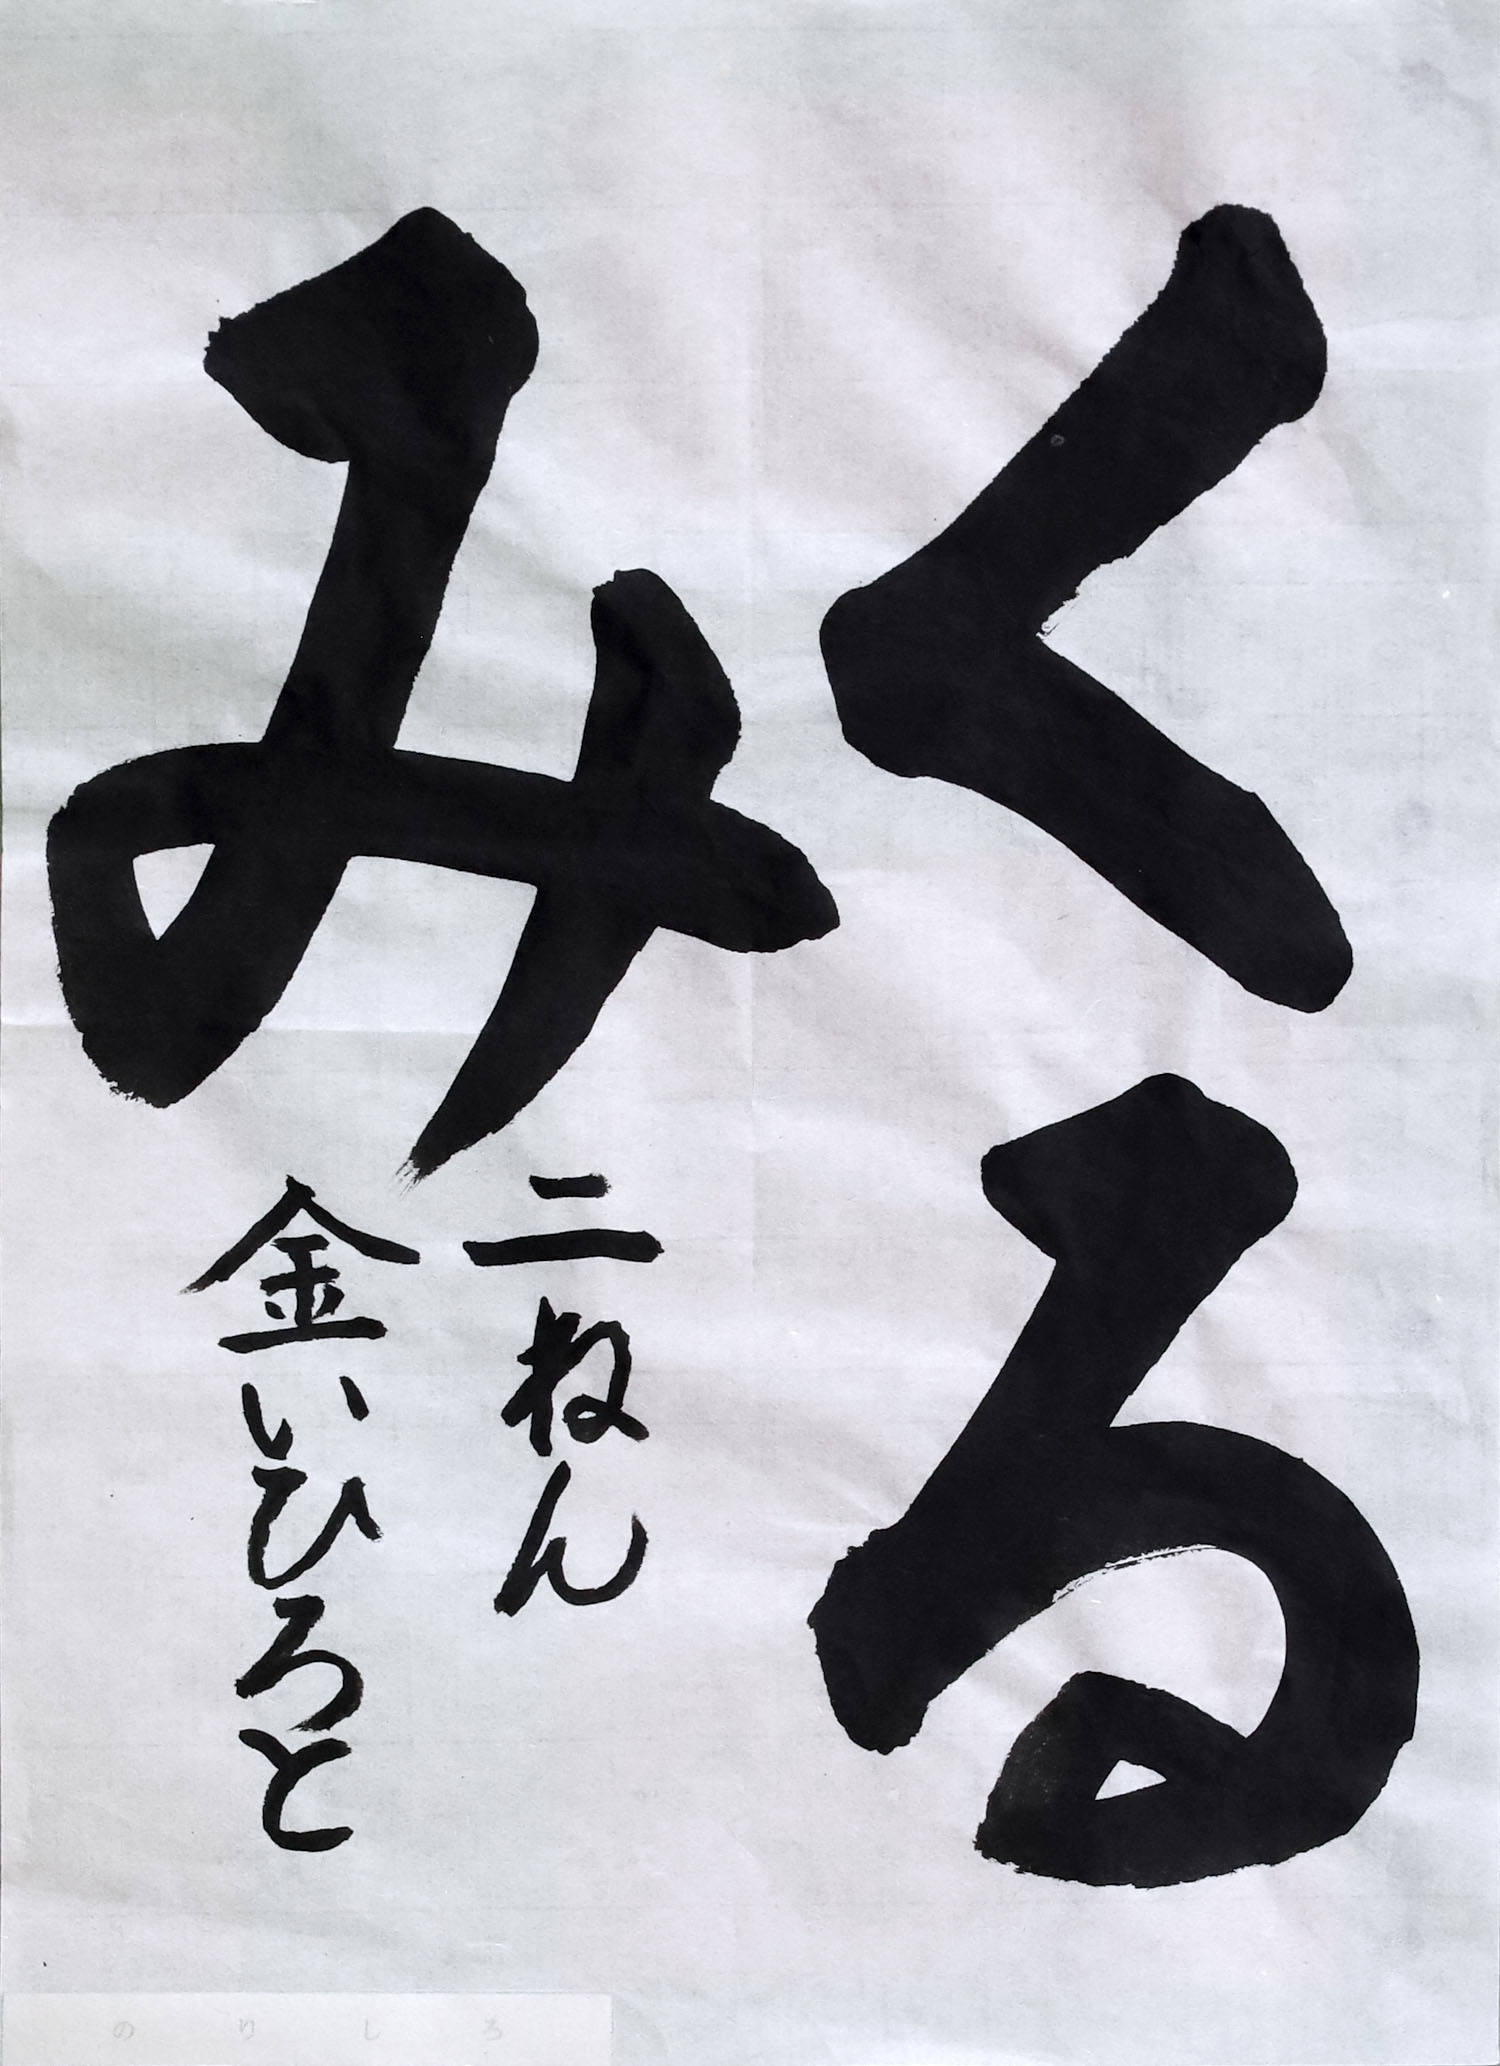 くる
み
二ねん
金いひろと
のりしろ